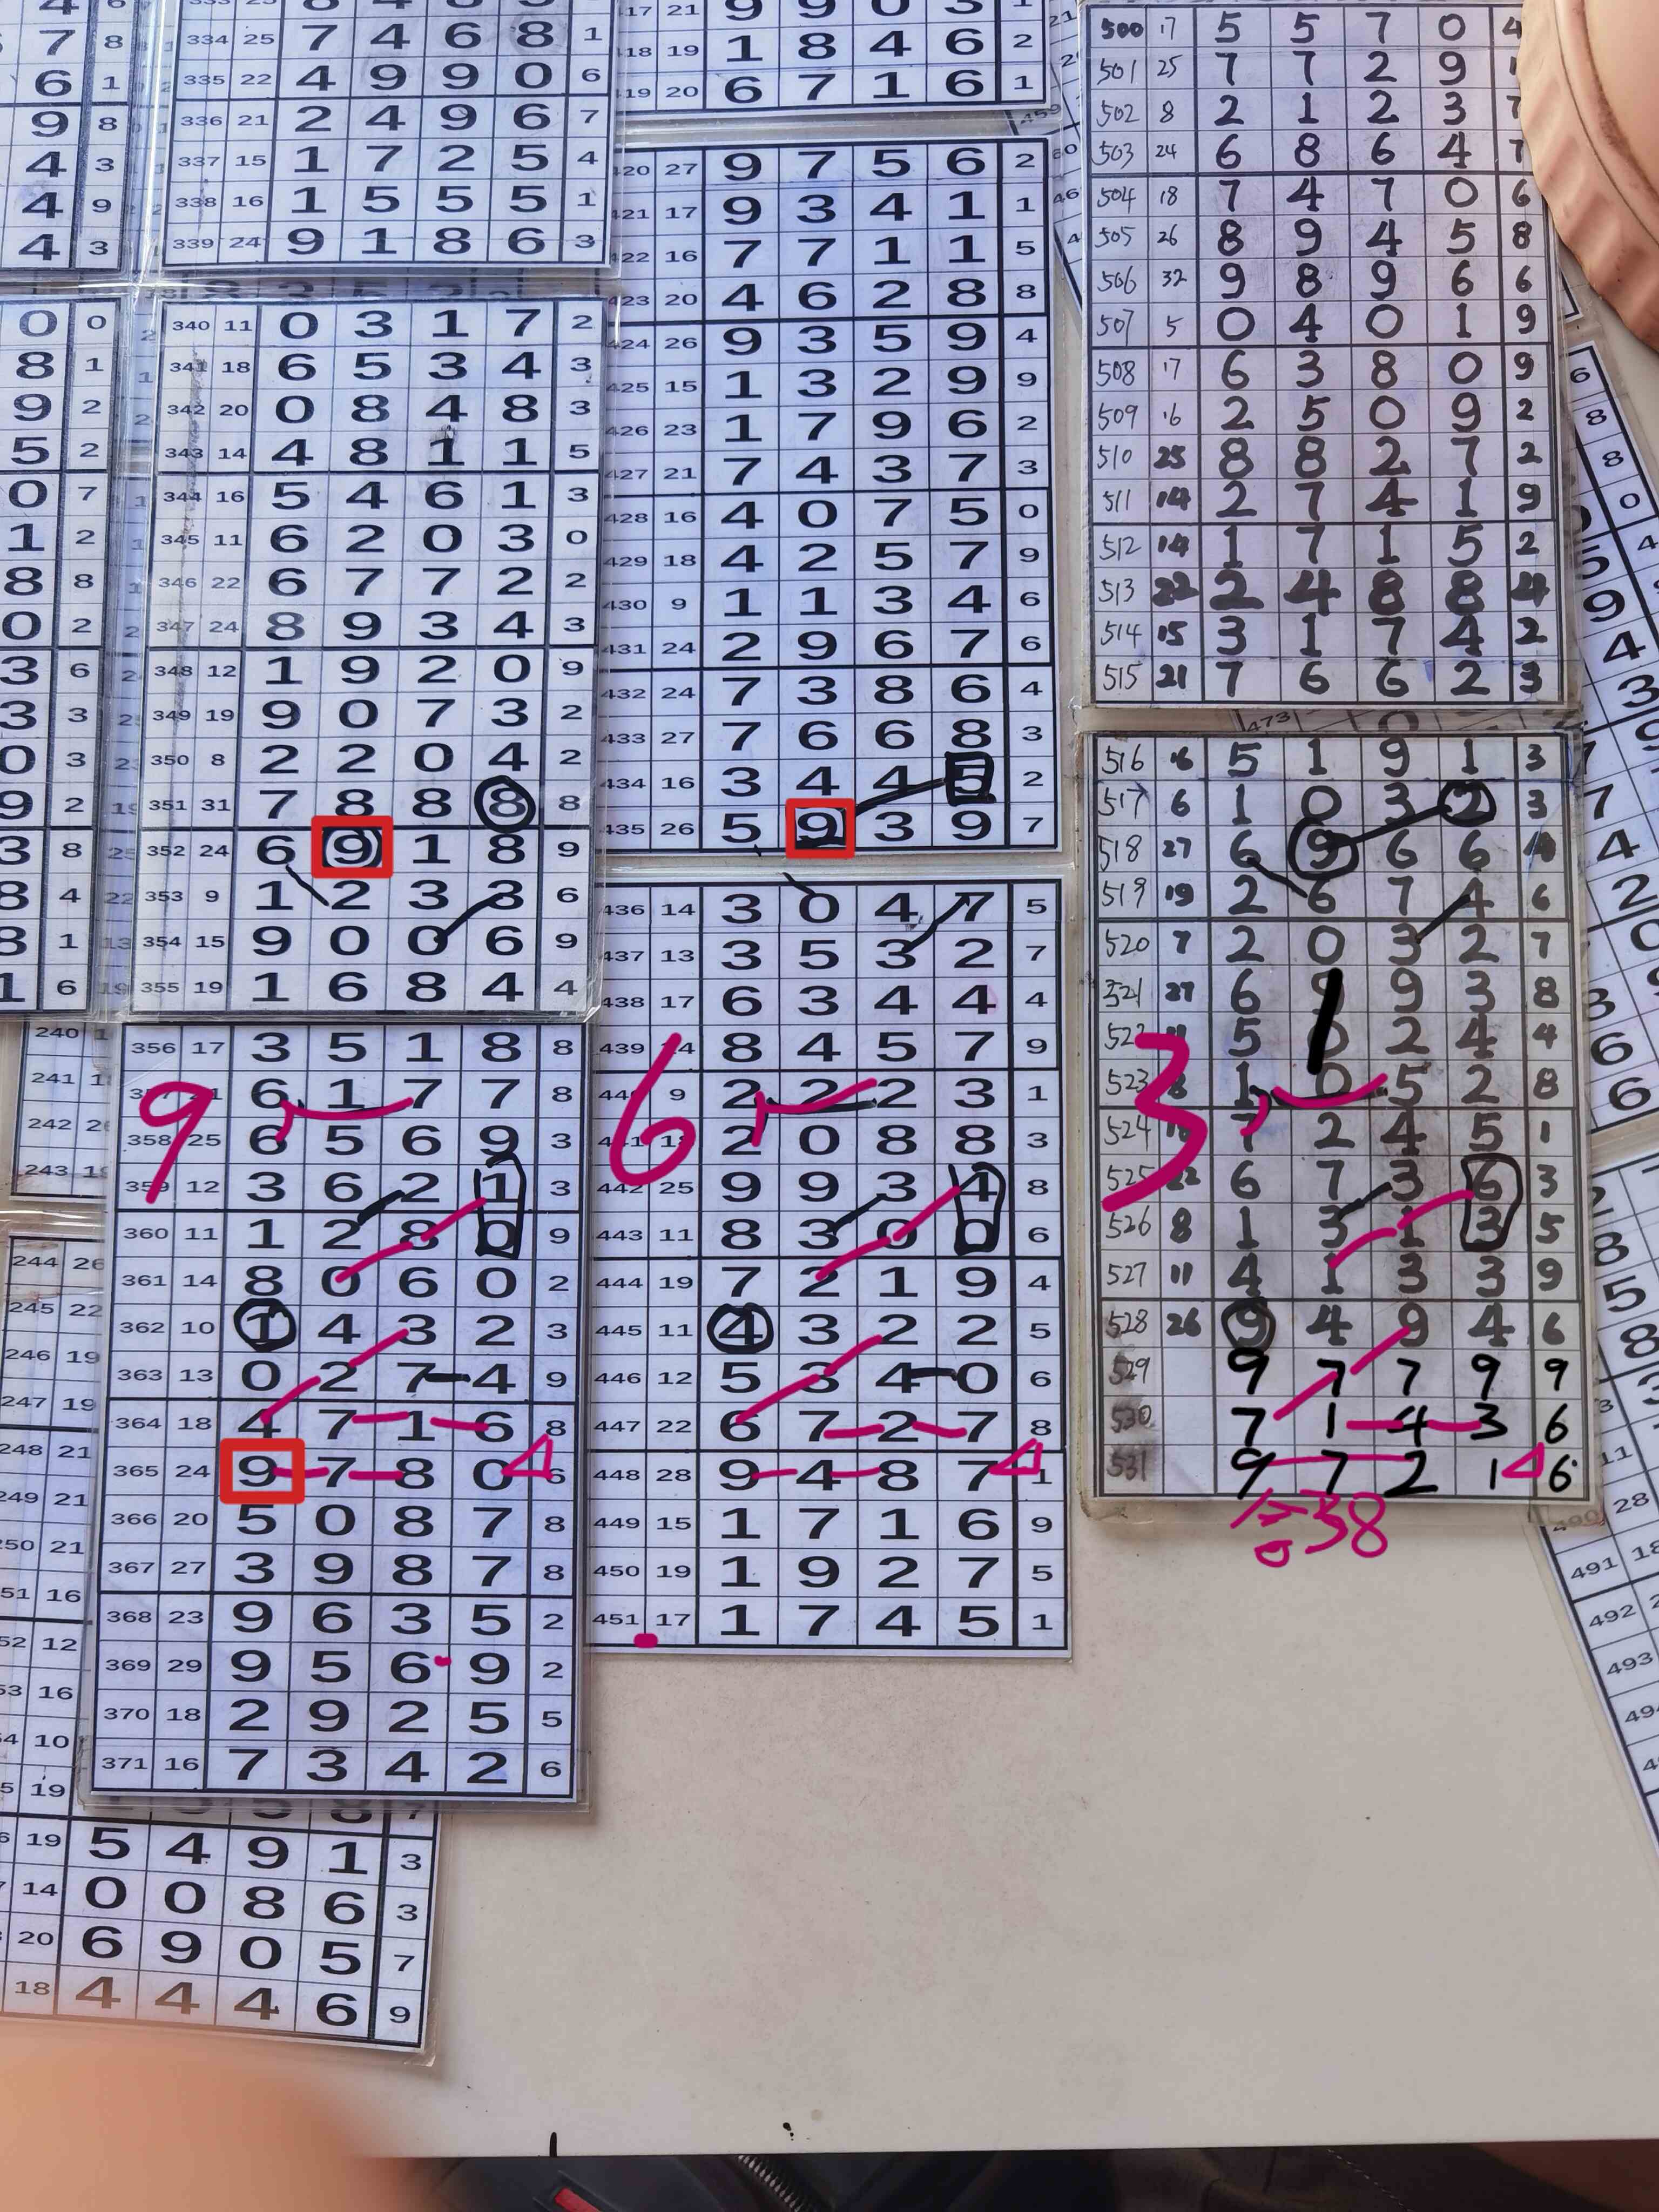 334 25 7 4 6 8 1
335 22 4 9 9 0 6
336 21 2 4 9 6 7
337 15 1 7 2 5 4
338 16 1 5 5 5 1
339 24 9 1 8 6 3
340 11 0 3 1 7 2
341 18 6 5 3 4 3
342 20 0 8 4 8 3
343 14 4 8 1 1 5
344 16 5 4 6 1 3
345 11 6 2 0 3 0
346 22 6 7 7 2 2
347 24 8 9 3 4 3
348 12 1 9 2 0 9
349 19 9 0 7 3 2
350 8 2 2 0 4 2
351 31 7 8 8 8 8
352 24 6 9 1 8 9
353 9 1 2 3 3 6
354 15 9 0 0 6 9
355 19 1 6 8 4 4
356 17 3 5 1 8 8
6 1 7 7 8
9
358 25 6 5 6 9 3
359 12 3 6 2 1 3
360 11 1 2 8 0 9
361 14 8 0 6 0 2
362 10 1 4 3 2 3
363 13 0 2 7 4 9
364 18 4 7 1 6 8
365 24 9 7 8 0 6
366 20 5 0 8 7 8
367 27 3 9 8 7 8
368 23 9 6 3 5 2
369 29 9 5 6 9 2
370 18 2 9 2 5 5
371 16 7 3 4 2 6
19 5 4 9 1 3
14 0 0 8 6 3
20 6 9 0 5 7
18 4 4 4 6 9
17 21 9 9 0 3 1
18 19 1 8 4 6 2
19 20 6 7 1 6 1
420 27 9 7 5 6 2
421 17 9 3 4 1 1
422 16 7 7 1 1 5
423 20 4 6 2 8 8
424 26 9 3 5 9 4
425 15 1 3 2 9 9
426 23 1 7 9 6 2
427 21 7 4 3 7 3
428 16 4 0 7 5 0
429 18 4 2 5 7 9
430 9 1 1 3 4 6
431 24 2 9 6 7 6
432 24 7 3 8 6 4
433 27 7 6 6 8 3
434 16 3 4 4 5 2
435 26 5 9 3 9 7
436 14 3 0 4 7 5
437 13 3 5 3 2 7
438 17 6 3 4 4 4
439 14 8 4 5 7 9
9 2 2 2 3 1
6
2 0 8 8 3
442 25 9 9 3 4 8
443 11 8 3 0 0 6
444 19 7 2 1 9 4
445 11 4 3 2 2 5
446 12 5 3 4 0 6
447 22 6 7 2 7 8
448 28 9 4 8 7 1
449 15 1 7 1 6 9
450 19 1 9 2 7 5
451 17 1 7 4 5 1
500 17 5 5 7 0 4
501 25 7 7 2 9
502 8 2 1 2 3 7
503 24 6 8 6 4 7
504 18 7 4 7 0 6
505 26 8 9 4 5 8
506 32 9 8 9 6 6
507 5 0 4 0 1 9
508 17 6 3 8 0 9
509 16 2 5 0 9 2
510 25 8 8 2 7 2
511 14 2 7 4 1 9
512 14 1 7 1 5 2
513 22 2 4 8 8 4
514 15 3 1 7 4 2
515 21 7 6 6 2 3
516 16 5 1 9 1 3
517 6 1 0 3 2 3
518 27 6 9 6 6 4
519 19 2 6 7 4 6
520 7 2 0 3 2 7
521 27 6 9 9 3 8
5 0 2 4 4
523 8 1 0 5 2 8
3
524 7 2 4 5 1
525 22 6 7 3 6 3
526 8 1 3 1 3 5
527 11 4 1 3 3 9
528 26 9 4 9 4 6
529 9 7 7 9 9
530 7 1 4 3 6
531 9 7 2 1 6
38
240
241
242
243
244 26
245 22
246 19
247 19
248 21
249 21
250 21
51 16
52 12
53 16
10
19
491 18
492
493